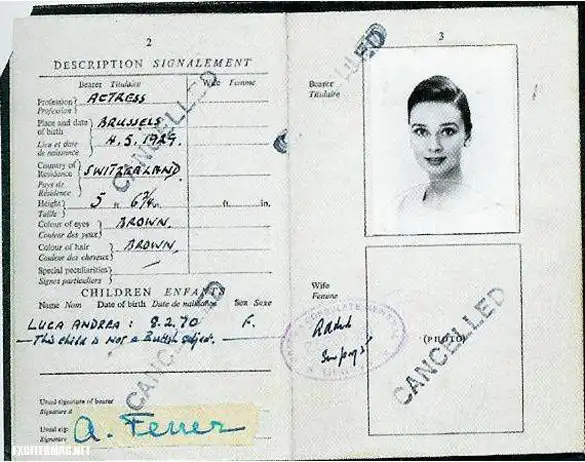 2
DESCRIPTION SIGNALEMENT
Bearer Titulaire Wife Femme
Profession
Profession
ACTRESS
Place and date
of birth
Lieu et date
de naissance
BRUSSELS
4.5.1929.
Country of
Residence
Pays de
Résidence
SWITZERLAND
Height
Taille
5 ft. 6¾ in. ft. in.
Colour of eyes
Couleur des yeux
BROWN.
Colour of hair
Couleur des cheveux
BROWN.
Special peculiarities
Signes particuliers
CANCELLED
CHILDREN ENFANTS
Name Nom Date of birth Date de naissance Sex Sexe
LUCA ANDREA: 8.2.70 F.
—This child is not a British subject.
CANCELLED
Usual signature of bearer
Signature d
Usual sig
Signature
A. Ferrer
EXCITERMAG.NET
3
CANCELLED
Bearer
Titulaire
Wife
Femme
(PHOTO)
CANCELLED